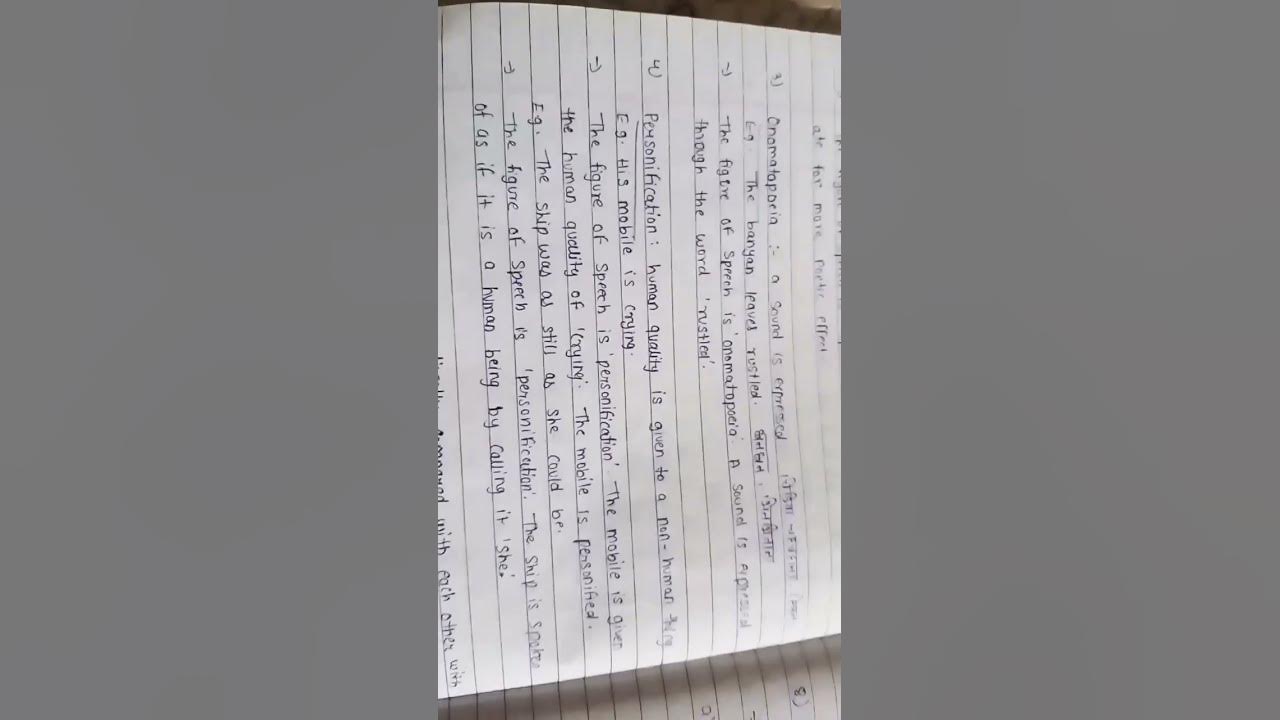 are for more poetic effect
3) Onomatopoeia :- a sound is expressed
Eg. The banyan leaves rustled.
→ The figure of speech is 'onomatopoeia'. A sound is expressed
through the word 'rustled'.
4) Personification: human quality is given to a non-human thing
Eg. His mobile is crying.
→ The figure of speech is 'personification'. The mobile is given
the human quality of 'crying'. The mobile is personified.
Eg. The ship was as still as she could be.
→ The figure of speech is 'personification'. The ship is spoken
of as if it is a human being by calling it 'she'.
compared with each other with
8)